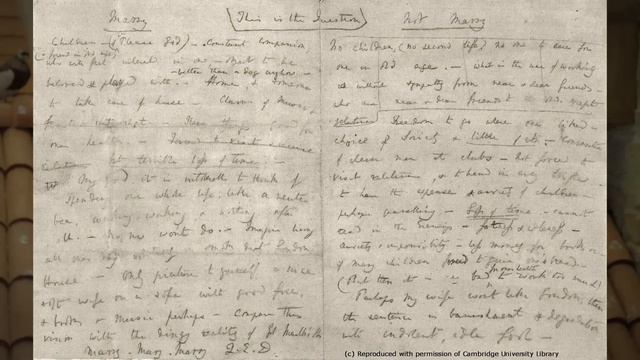 This is the Question
Marry
Children — (if Please God) — Constant companion
(& friend in old age)
who will feel interested in one — object to be
— better than a dog anyhow —
beloved & played with. — Home, & someone
to take care of house — Charms of music &
female chit-chat — These things good for
one's health — Forced to visit & receive
relations but terrible loss of time. —
My God, it is intolerable to think of
spending one's whole life, like a neuter
bee, working, working, & nothing after
all. — No, no won't do. — Imagine living
all one's day solitary in smoky dirty London
House — Only picture to yourself a nice
soft wife on a sofa with good fire,
& books & music perhaps — Compare this
vision with the dingy reality of Grt Marlbro' St.
Marry — Mary — Marry Q.E.D.
Not Marry
No children, (no second life), no one to care for
one in old age. — What is the use of working
without sympathy from near & dear friends —
who are near & dear friends to the old, except
relatives Freedom to go where one liked —
choice of Society & little of it. — Conversation
of clever men at clubs — Not forced to
visit relatives, & to bend in every trifle —
to have the expense & anxiety of children —
perhaps quarelling — Loss of time. — cannot
read in the Evenings — fatness & idleness —
Anxiety & responsibility — less money for books &c —
if many children forced to gain one's bread —
(But then it is very bad for ones health to work too much)
Perhaps my wife wont like London; then
the sentence is banishment & degradation
into indolent, idle fool —
(c) Reproduced with permission of Cambridge University Library